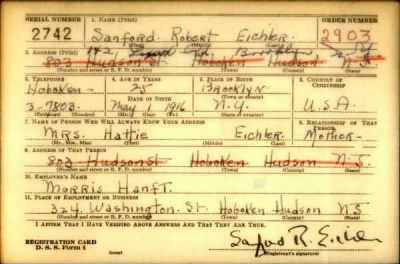 SERIAL NUMBER 1. NAME (Print) ORDER NUMBER
2742 Sanford Robert Eichler 2903
(First) (Middle) (Last)
142 Brooklyn N.Y.
2. ADDRESS (Print)
803 Hudson St Hoboken Hudson N.J.
(Number and street or R. F. D. number) (Town) (County) (State)
3. TELEPHONE 4. AGE IN YEARS 5. PLACE OF BIRTH 6. COUNTRY OF CITIZENSHIP
Hoboken- 25 Brooklyn
DATE OF BIRTH (Town or county)
3-7803. May 1 1916 N.Y. U.S.A.
(Exchange) (Number) (Mo.) (Day) (Yr.) (State or country)
7. NAME OF PERSON WHO WILL ALWAYS KNOW YOUR ADDRESS 8. RELATIONSHIP OF THAT PERSON
Mrs. Hattie Eichler Mother-
(Mr., Mrs., Miss) (First) (Middle) (Last)
9. ADDRESS OF THAT PERSON
803 Hudson St Hoboken Hudson N.J.
(Number and street or R. F. D. number) (Town) (County) (State)
10. EMPLOYER'S NAME
Morris Hanft.
11. PLACE OF EMPLOYMENT OR BUSINESS
324 Washington St. Hoboken Hudson N.J.
(Number and street or R. F. D. number) (Town) (County) (State)
I AFFIRM THAT I HAVE VERIFIED ABOVE ANSWERS AND THAT THEY ARE TRUE.
REGISTRATION CARD
D. S. S. Form 1
(Registrant's signature)